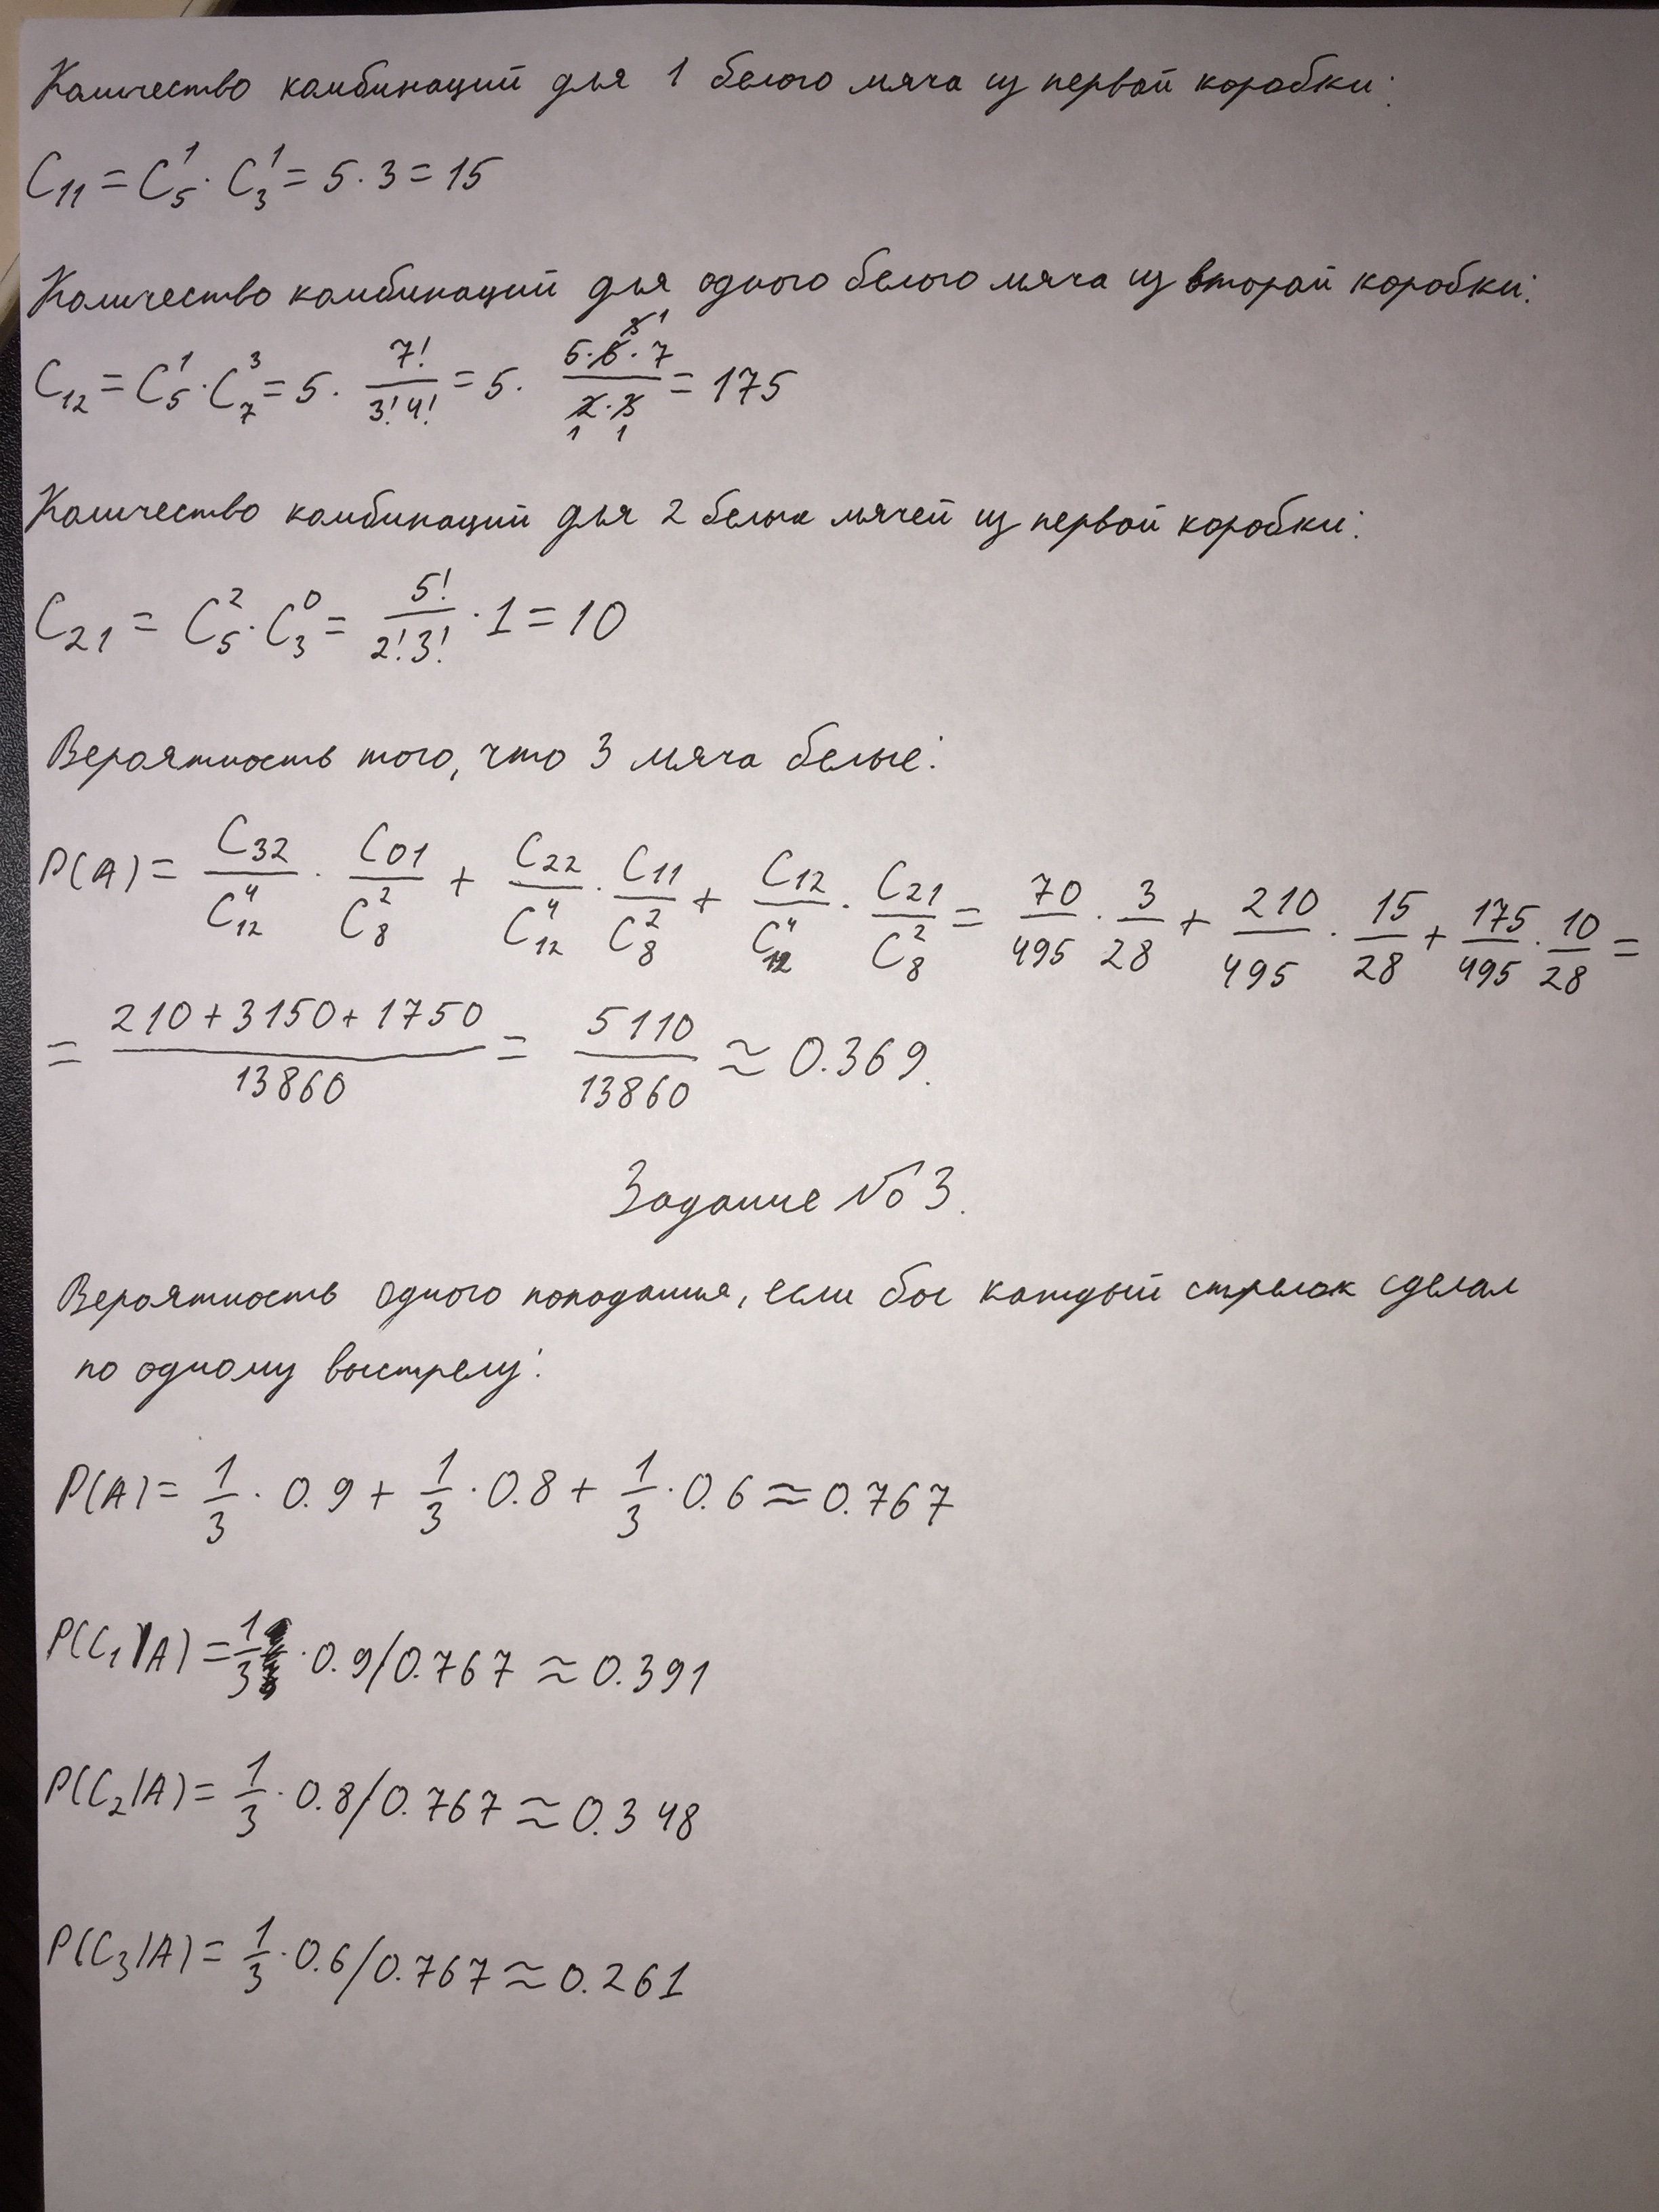 Количество комбинаций для 1 белого мяча из первой коробки:
C₁₁ = C₅¹ · C₃¹ = 5 · 3 = 15
Количество комбинаций для одного белого мяча из второй коробки:
C₁₂ = C₅¹ · C₇³ = 5 · 7!/(3!4!) = 5 · (5·6·7)/(2·3) = 175
Количество комбинаций для 2 белых мячей из первой коробки:
C₂₁ = C₅² · C₃⁰ = 5!/(2!3!) · 1 = 10
Вероятность того, что 3 мяча белые:
P(A) = C₃₂/C₁₂⁴ · C₀₁/C₈² + C₂₂/C₁₂⁴ · C₁₁/C₈² + C₁₂/C₁₂⁴ · C₂₁/C₈² = 70/495 · 3/28 + 210/495 · 15/28 + 175/495 · 10/28 =
= (210+3150+1750)/13860 = 5110/13860 ≈ 0.369.
Задание №3.
Вероятность одного попадания, если бы каждый стрелок сделал
по одному выстрелу:
P(A) = 1/3 · 0.9 + 1/3 · 0.8 + 1/3 · 0.6 ≈ 0.767
P(C₁|A) = 1/3 · 0.9/0.767 ≈ 0.391
P(C₂|A) = 1/3 · 0.8/0.767 ≈ 0.348
P(C₃|A) = 1/3 · 0.6/0.767 ≈ 0.261